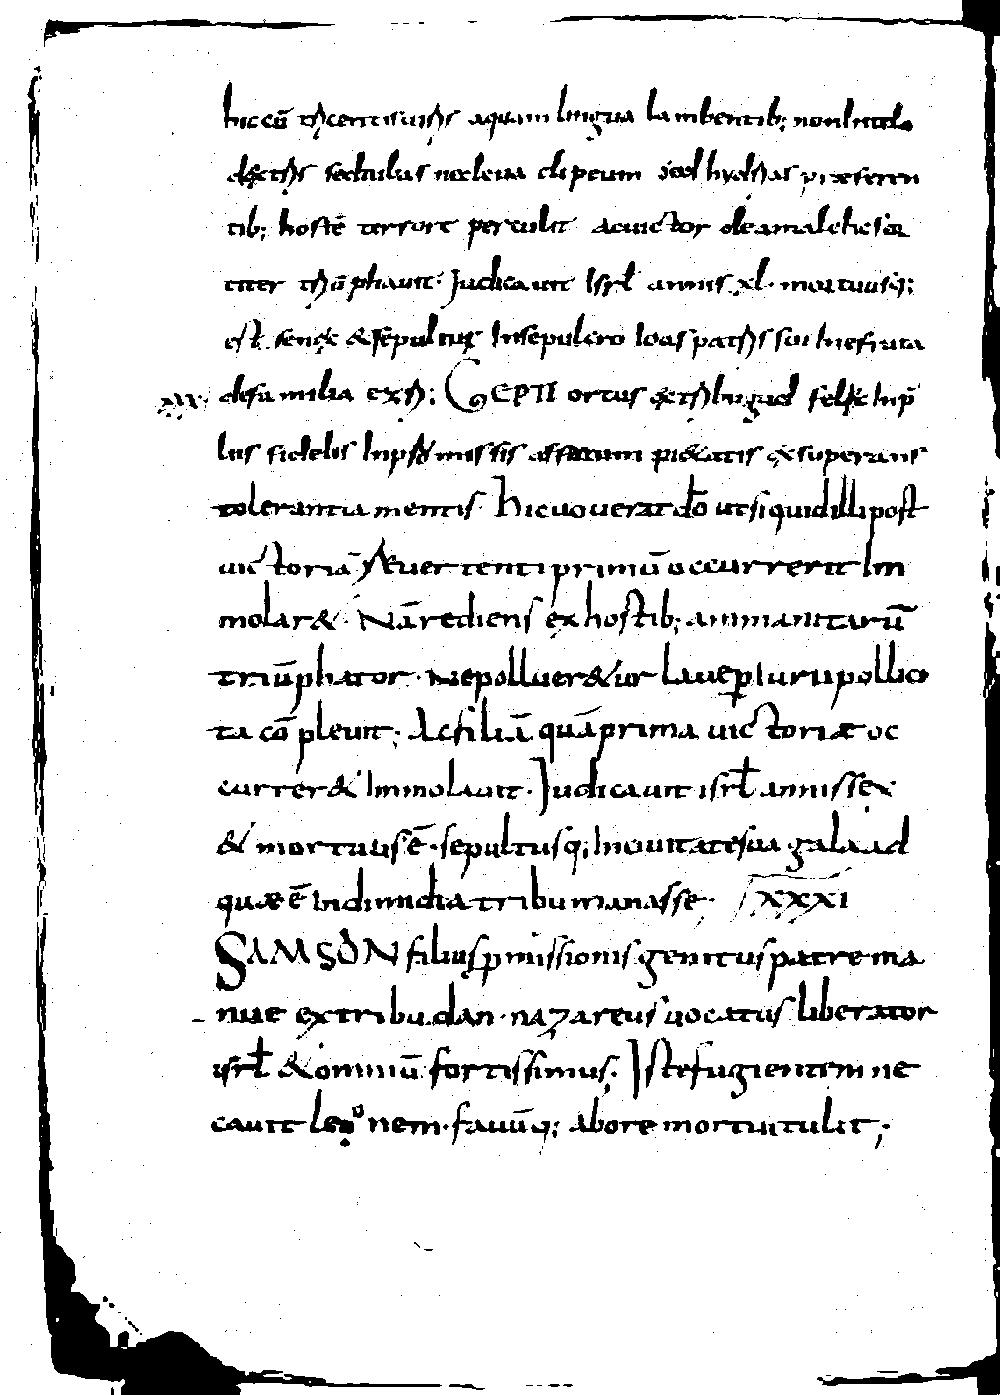 hic cū trecentis uiris aquam lingua lambentib; non lutulo
dextris sed tubas nec leua clipeum sed hydrias praeferen
tib; hostē terrore perculit ac uictor de amalech
titer triūphauit. Judicauit Isrł annis xl. mortuusq;
est senex & sepultus In sepulcro Ioas patris sui In efrata
de familia ezri; GEPTE ortus
lus fidelis In promissis assertum pietatis exsuperans
tolerantia mentis. hic uouerat dō ut siquid illi post
uictoriā reuertenti primū occurrerit Im
molar&. Nā rediens ex hostib; ammanitarū
triūphator. Ne polluer&ur laueꝑ Iurii pollici
ta cōpleuit; Ac filiā quā prima uictoriae oc
currer& Immolauit. Judicauit isrł annis sex
& mortuus ē. sepultusq; In ciuitate sua galaad
quae ē In dimidia tribu manasse. XXXI
SAMSON filius ꝓmissionis genitus patre ma
nue ex tribu dan. nazareus uocatus liberator
isrł & omniū fortissimus. Iste fugientem ne
cauit leonem. fauūq; ab ore mortui tulit;